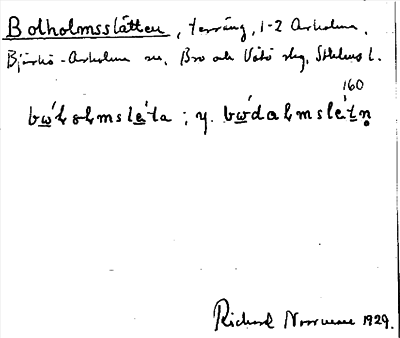 Botholmsslätten, terräng, 1-2 Arholma,
Björkö-Arholma sn, Bro och Vätö skg, Sthlms l.
160
bώƚɷƚmslèta ; y. bώdaƚmslétn̥
Richard Norrman 1929.